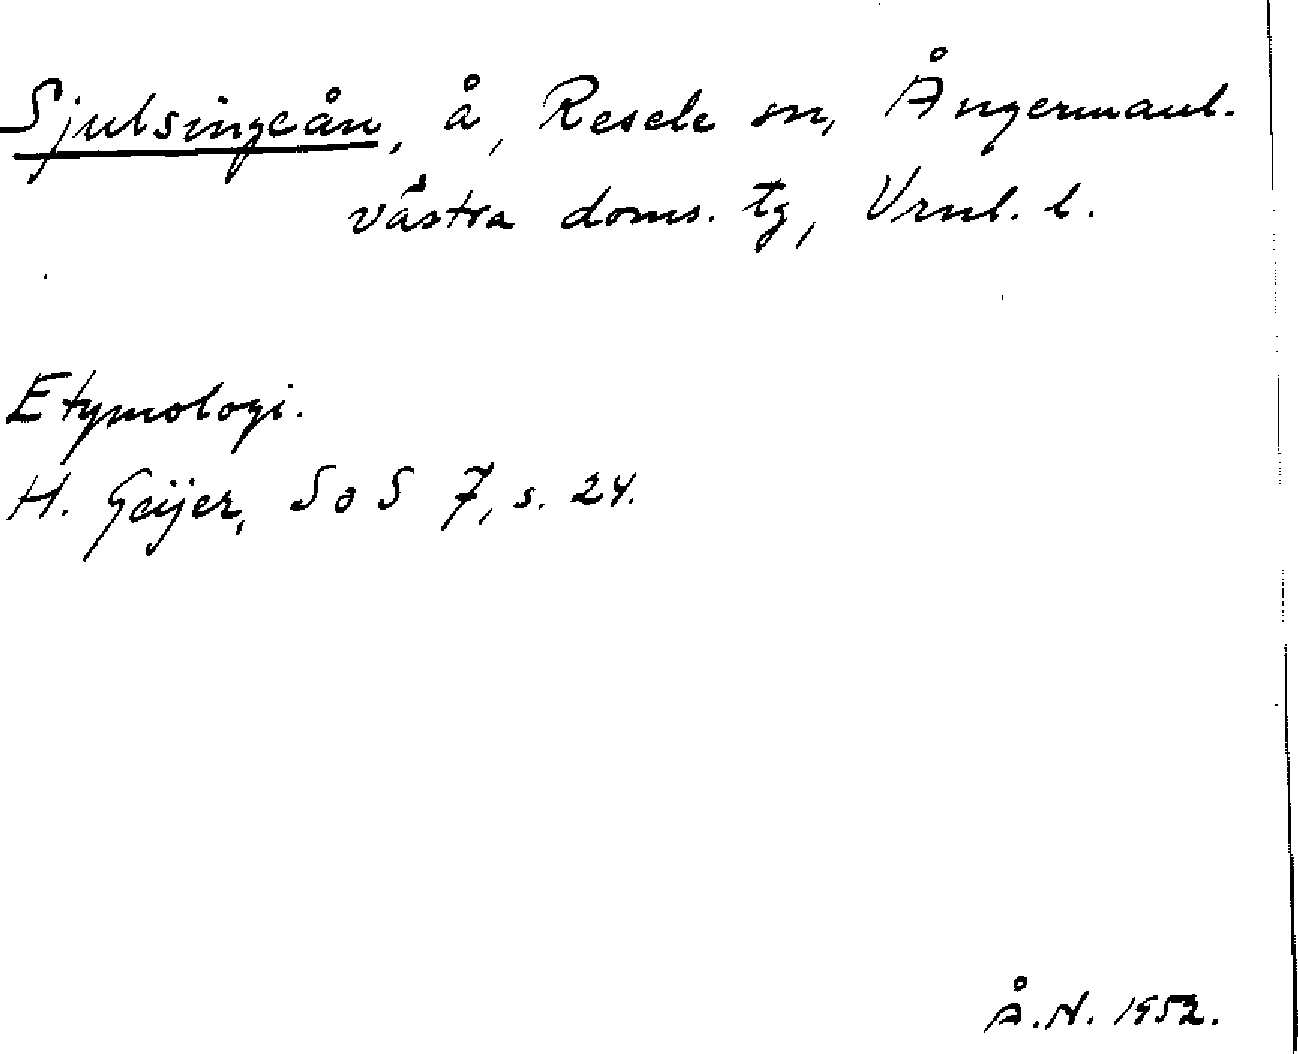 Sjulsingeån, å, Resele sn, Ångermanl.
västra doms. tg, Vrnl. l.
Etymologi.
H. Geijer, SoS 7, s. 24.
Å.N. 1952.